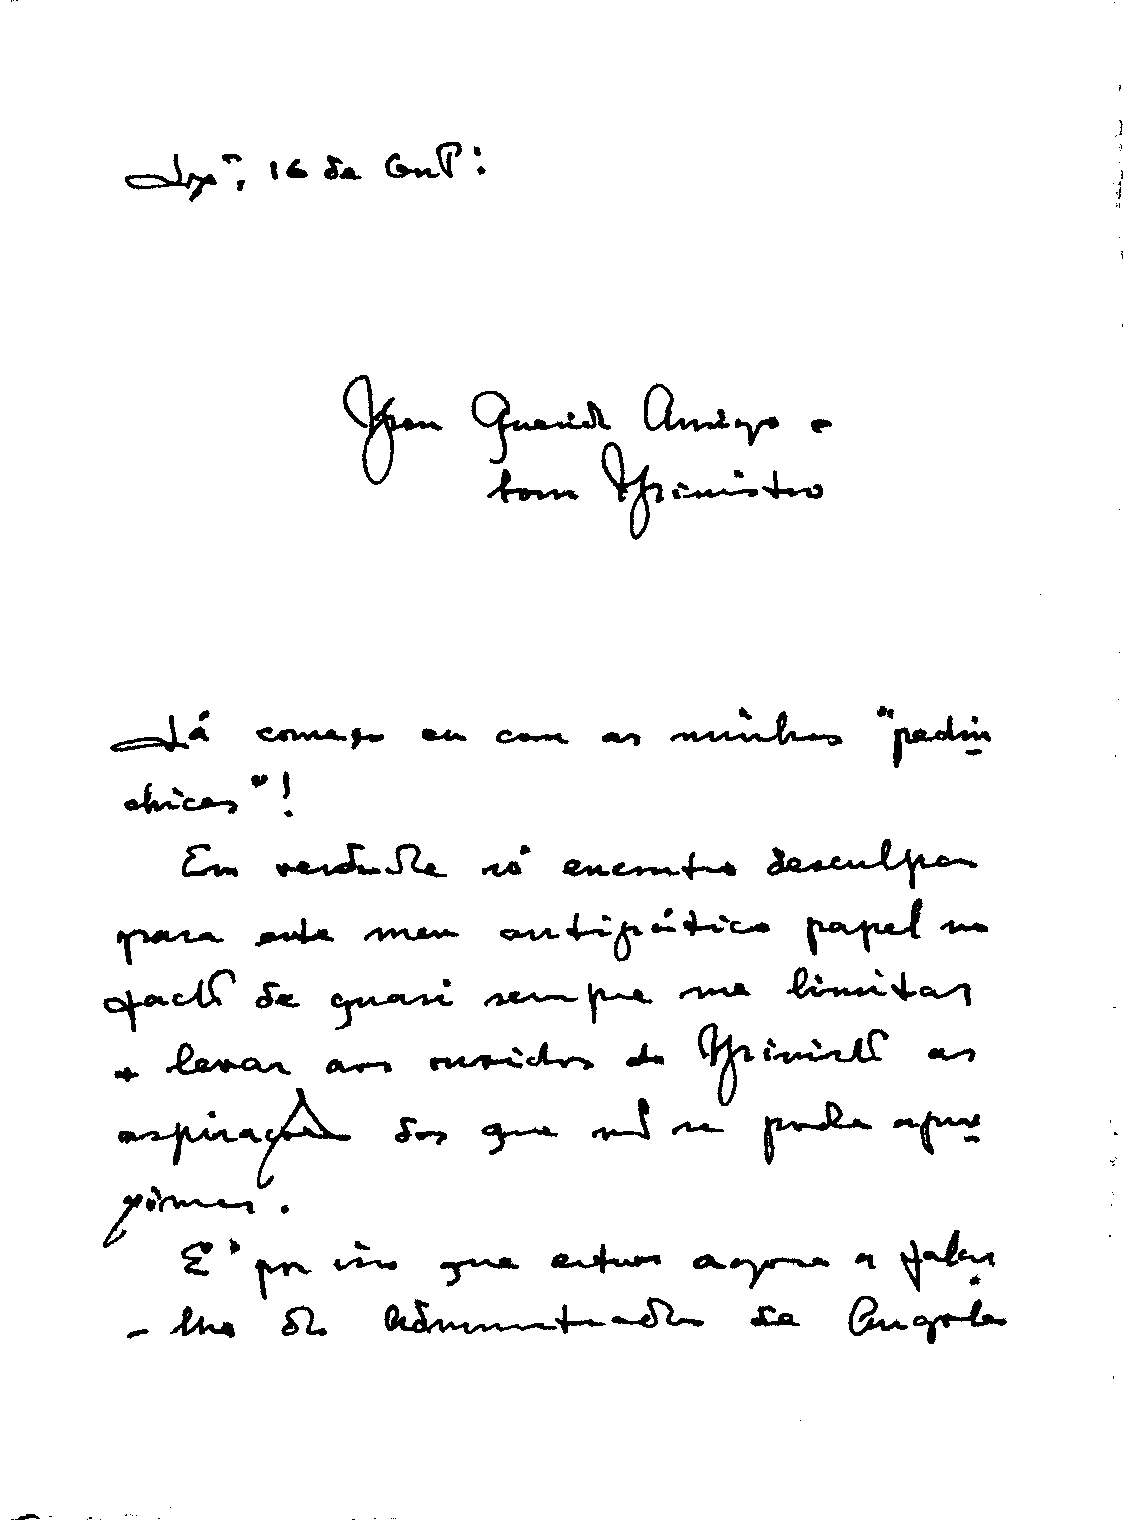 Lxª, 16 de Outº:
Meu Querido Amigo e
bom Ministro
Lá começo eu com as minhas "pedin
chices"!
Em verdade só encontro desculpa
para este meu antipático papel no
facto de quasi sempre me limitar
a levar aos ouvidos do Ministro as
aspirações dos que não se pode apro
ximar.
É por isso que estou agora a falar
-lhe do Administrador de Angola